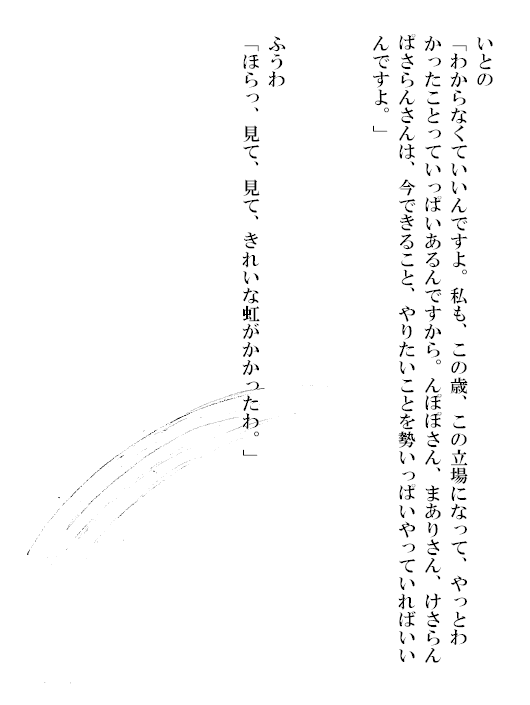 いとの
「わからなくていいんですよ。私も、この歳、この立場になって、やっとわ
かったことっていっぱいあるんですから。んぽぽさん、まありさん、けさらん
ぱさらんさんは、今できること、やりたいことを勢いっぱいやっていればいい
んですよ。」
ふうわ
「ほらっ、見て、見て、きれいな虹がかかったわ。」